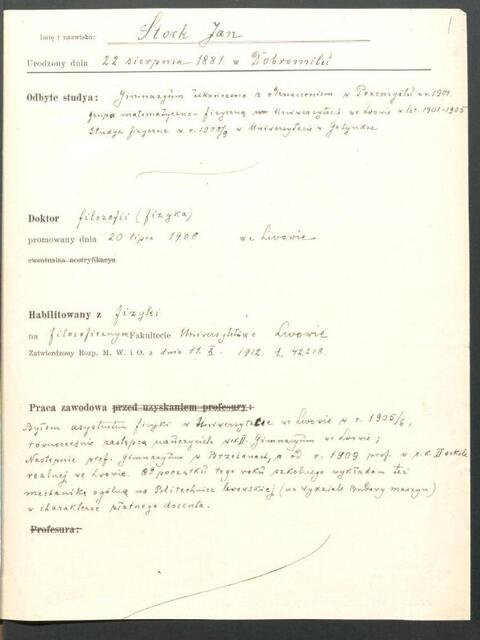 1
Imię i nazwisko: Stock Jan
Urodzony dnia 22 sierpnia 1881 w Dobromilu
Odbyte studya: Gimnazyum ukończone z odznaczeniem w Przemyślu w r. 1901.
Grupa matematyczno fizyczna na Uniwersytecie we Lwowie w lat. 1901-1905
Studya fizyczne w r. 1908/9 w Uniwersytecie w Getyndze
Doktor filozofii (fizyka)
promowany dnia 20 lipca 1908 we Lwowie
ewentualna nostryfikacya
Habilitowany z fizyki
na filozoficznym Fakultecie Uniwersytetu Lwowie
Zatwierdzony Rozp. M. W. i O. z dnia 11. X. 1912. l. 42218.
Praca zawodowa przed uzyskaniem profesury:
Byłem asystentem fizyki w Uniwersytecie we Lwowie w r. 1905/6,
równocześnie zastępcą nauczyciela w II. Gimnazyum we Lwowie;
Następnie prof. Gimnazyum w Brzeżanach, a od r. 1909 prof. w c. k. II szkole
realnej we Lwowie. Od początku tego roku szkolnego wykładam też
mechanikę ogólną na Politechnice lwowskiej (na wydziale Budowy maszyn)
w charakterze płatnego docenta.
Profesura: